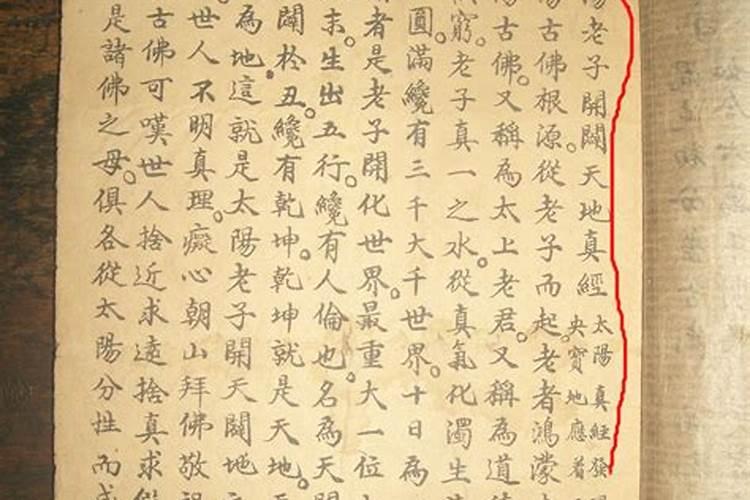 陽老子開闢天地真經
太陽真經發
央寶地應着
古佛根源從老子而起老者鴻濛
古佛又稱為太上老君又稱為道
窮老子真一之水從真氣化濁生
圓滿纔有三千大千世界十日為
者是老子開化世界最重大一位
末生出五行纔有人倫也名為天
闢於丑纔有乾坤乾坤就是天地
為地這就是太陽老子開天闢地
世人不明真理癡心朝山拜佛敬
古佛可嘆世人捨近求遠捨真求
是諸佛之母俱各從太陽分性而成